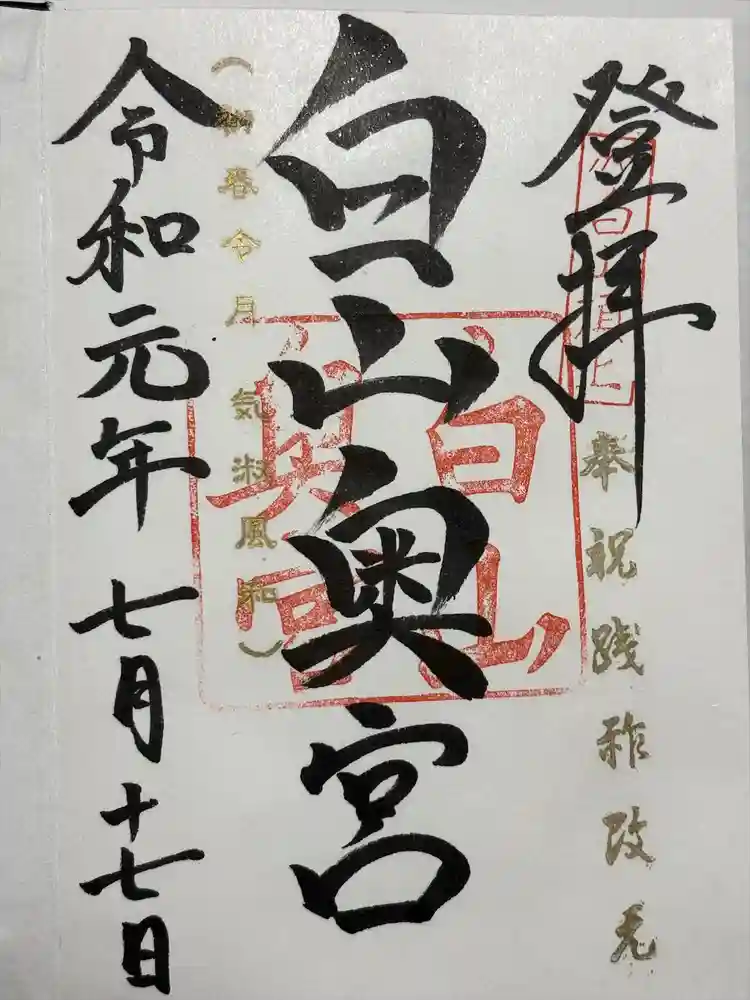 登拝
奉祝践祚改元
白山奥宮
白山
奥宮
(初春令月 気淑風和)
令和元年 七月 十七日